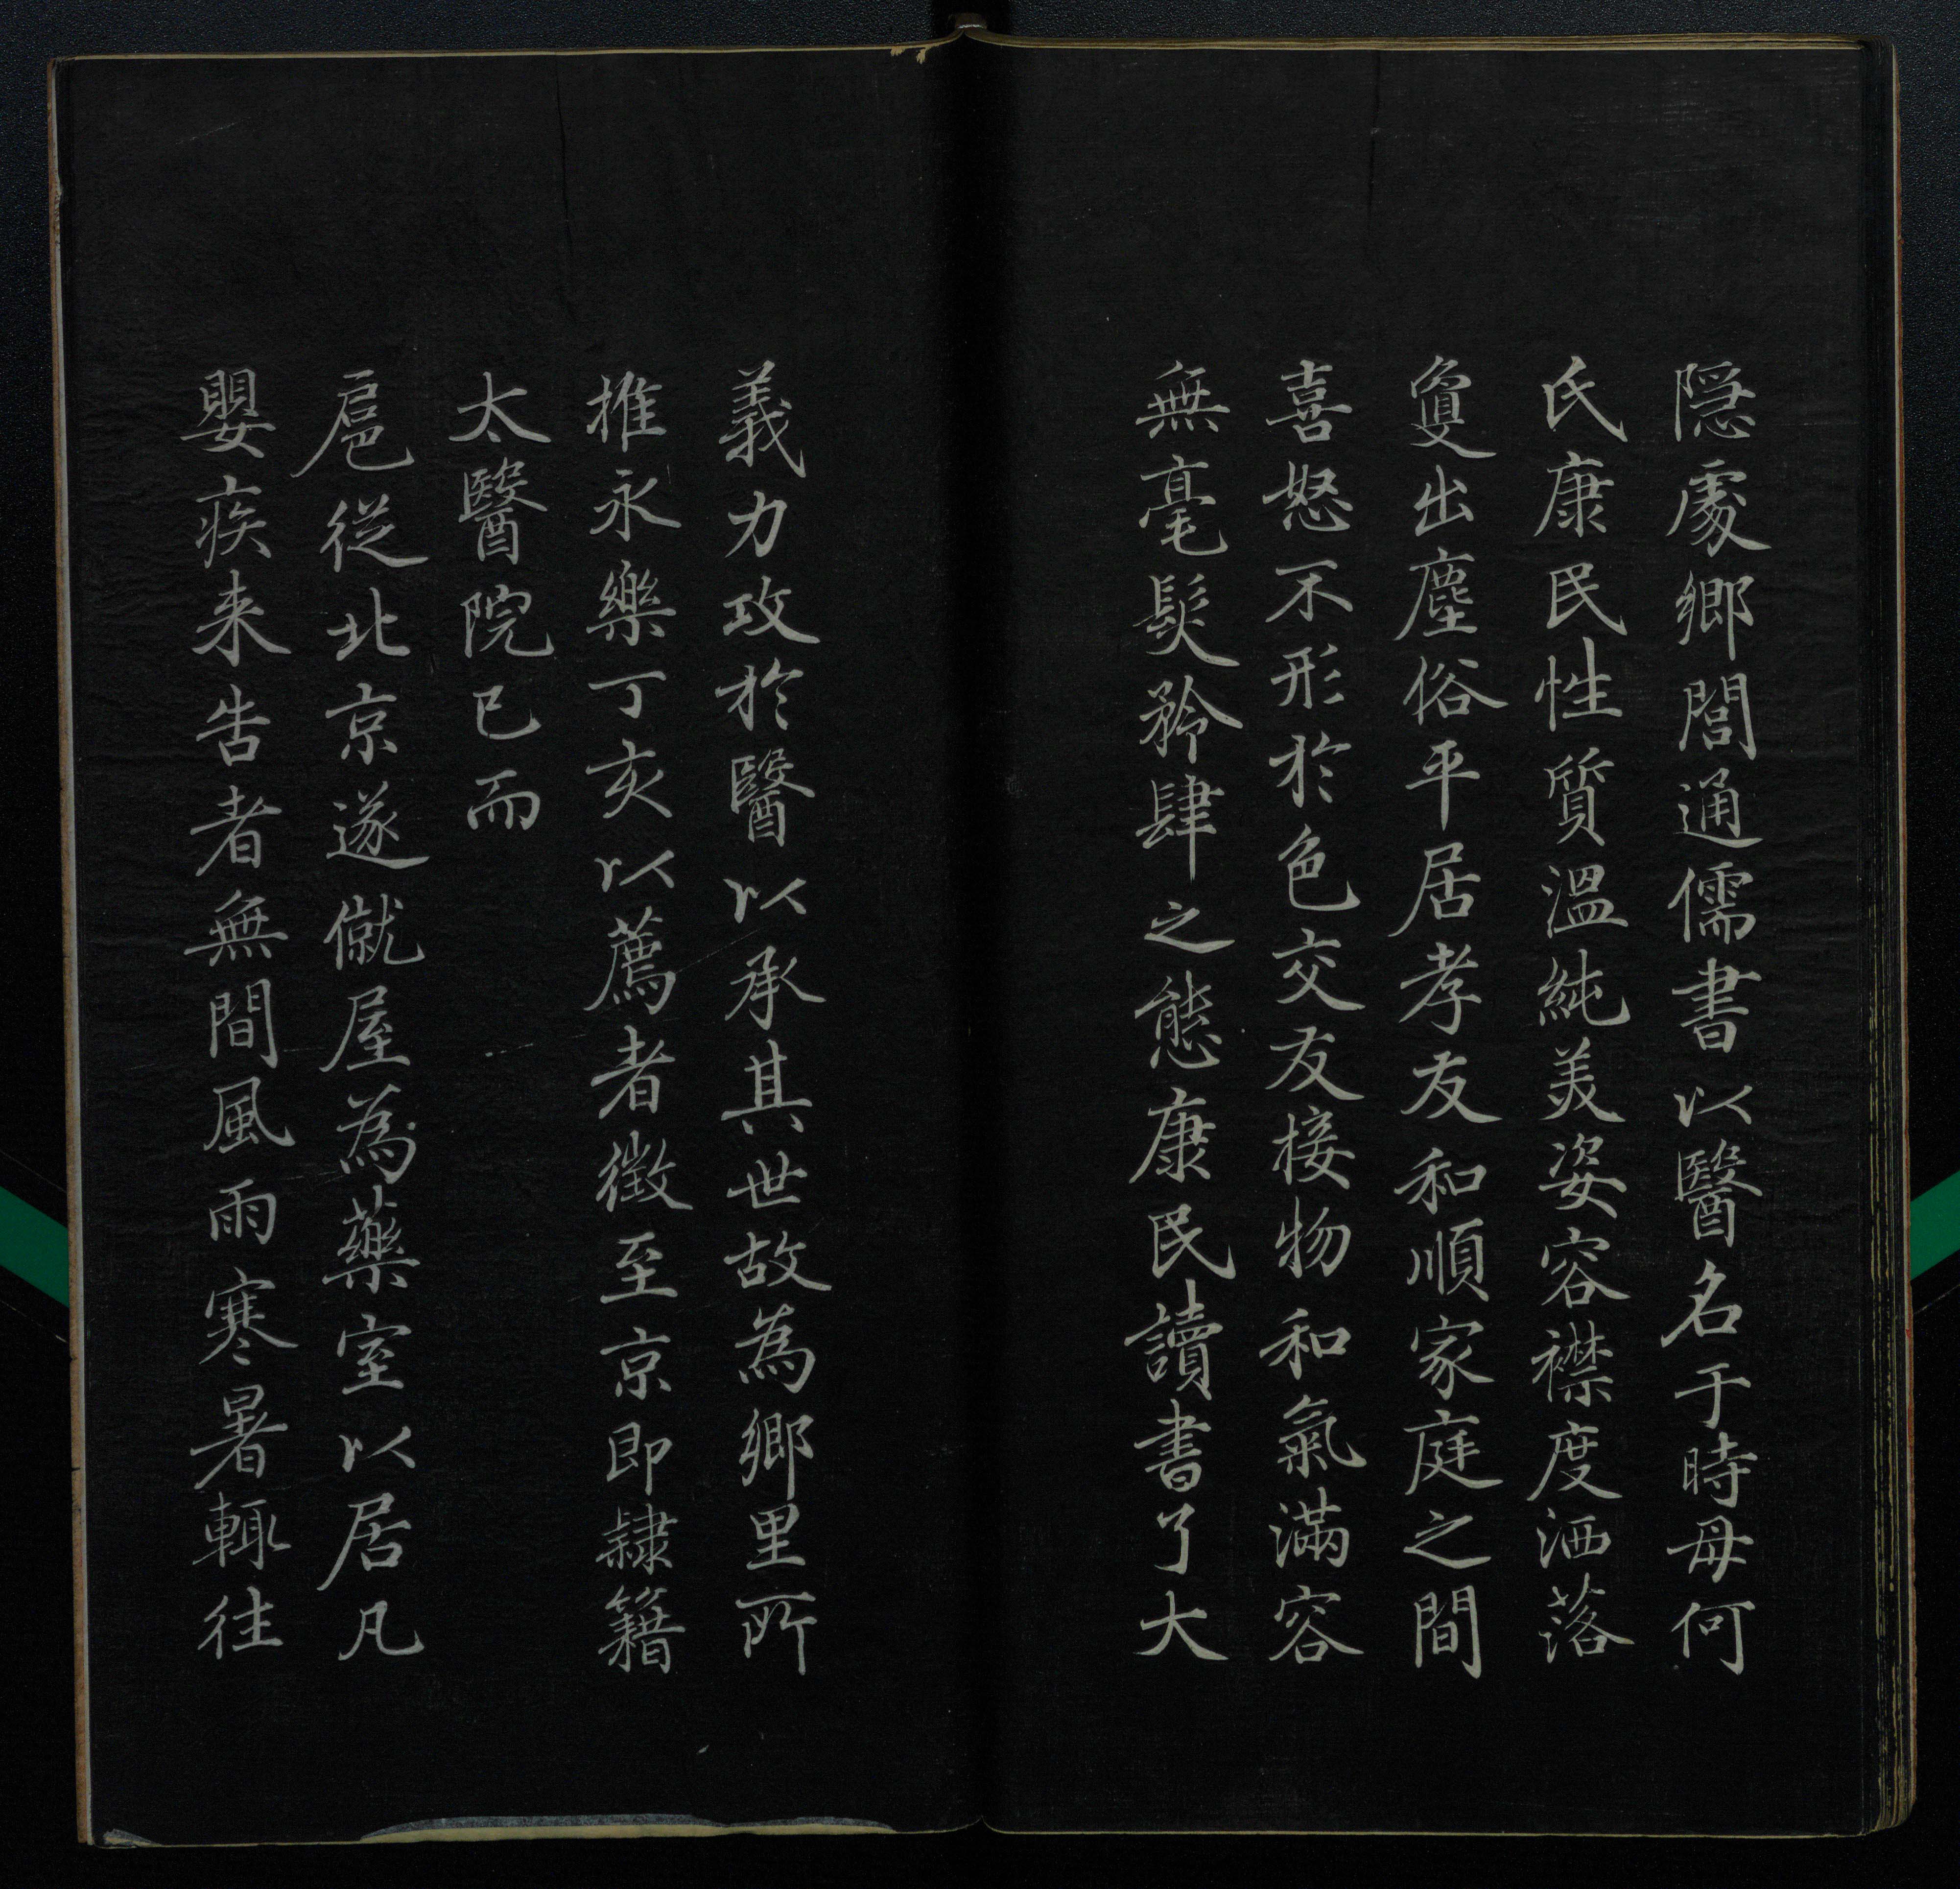 隱處鄉閭通儒書以醫名于時母何
氏康民性質溫純美姿容襟度洒落
敻出塵俗平居孝友和順家庭之間
喜怒不形於色交友接物和氣滿容
無毫髮矜肆之態康民讀書了大
義力攻於醫以承其世故為鄉里所
推永樂丁亥以薦者徵至京即隸籍
太醫院已而
扈從北京遂僦屋為藥室以居凡
嬰疾来告者無間風雨寒暑輒往